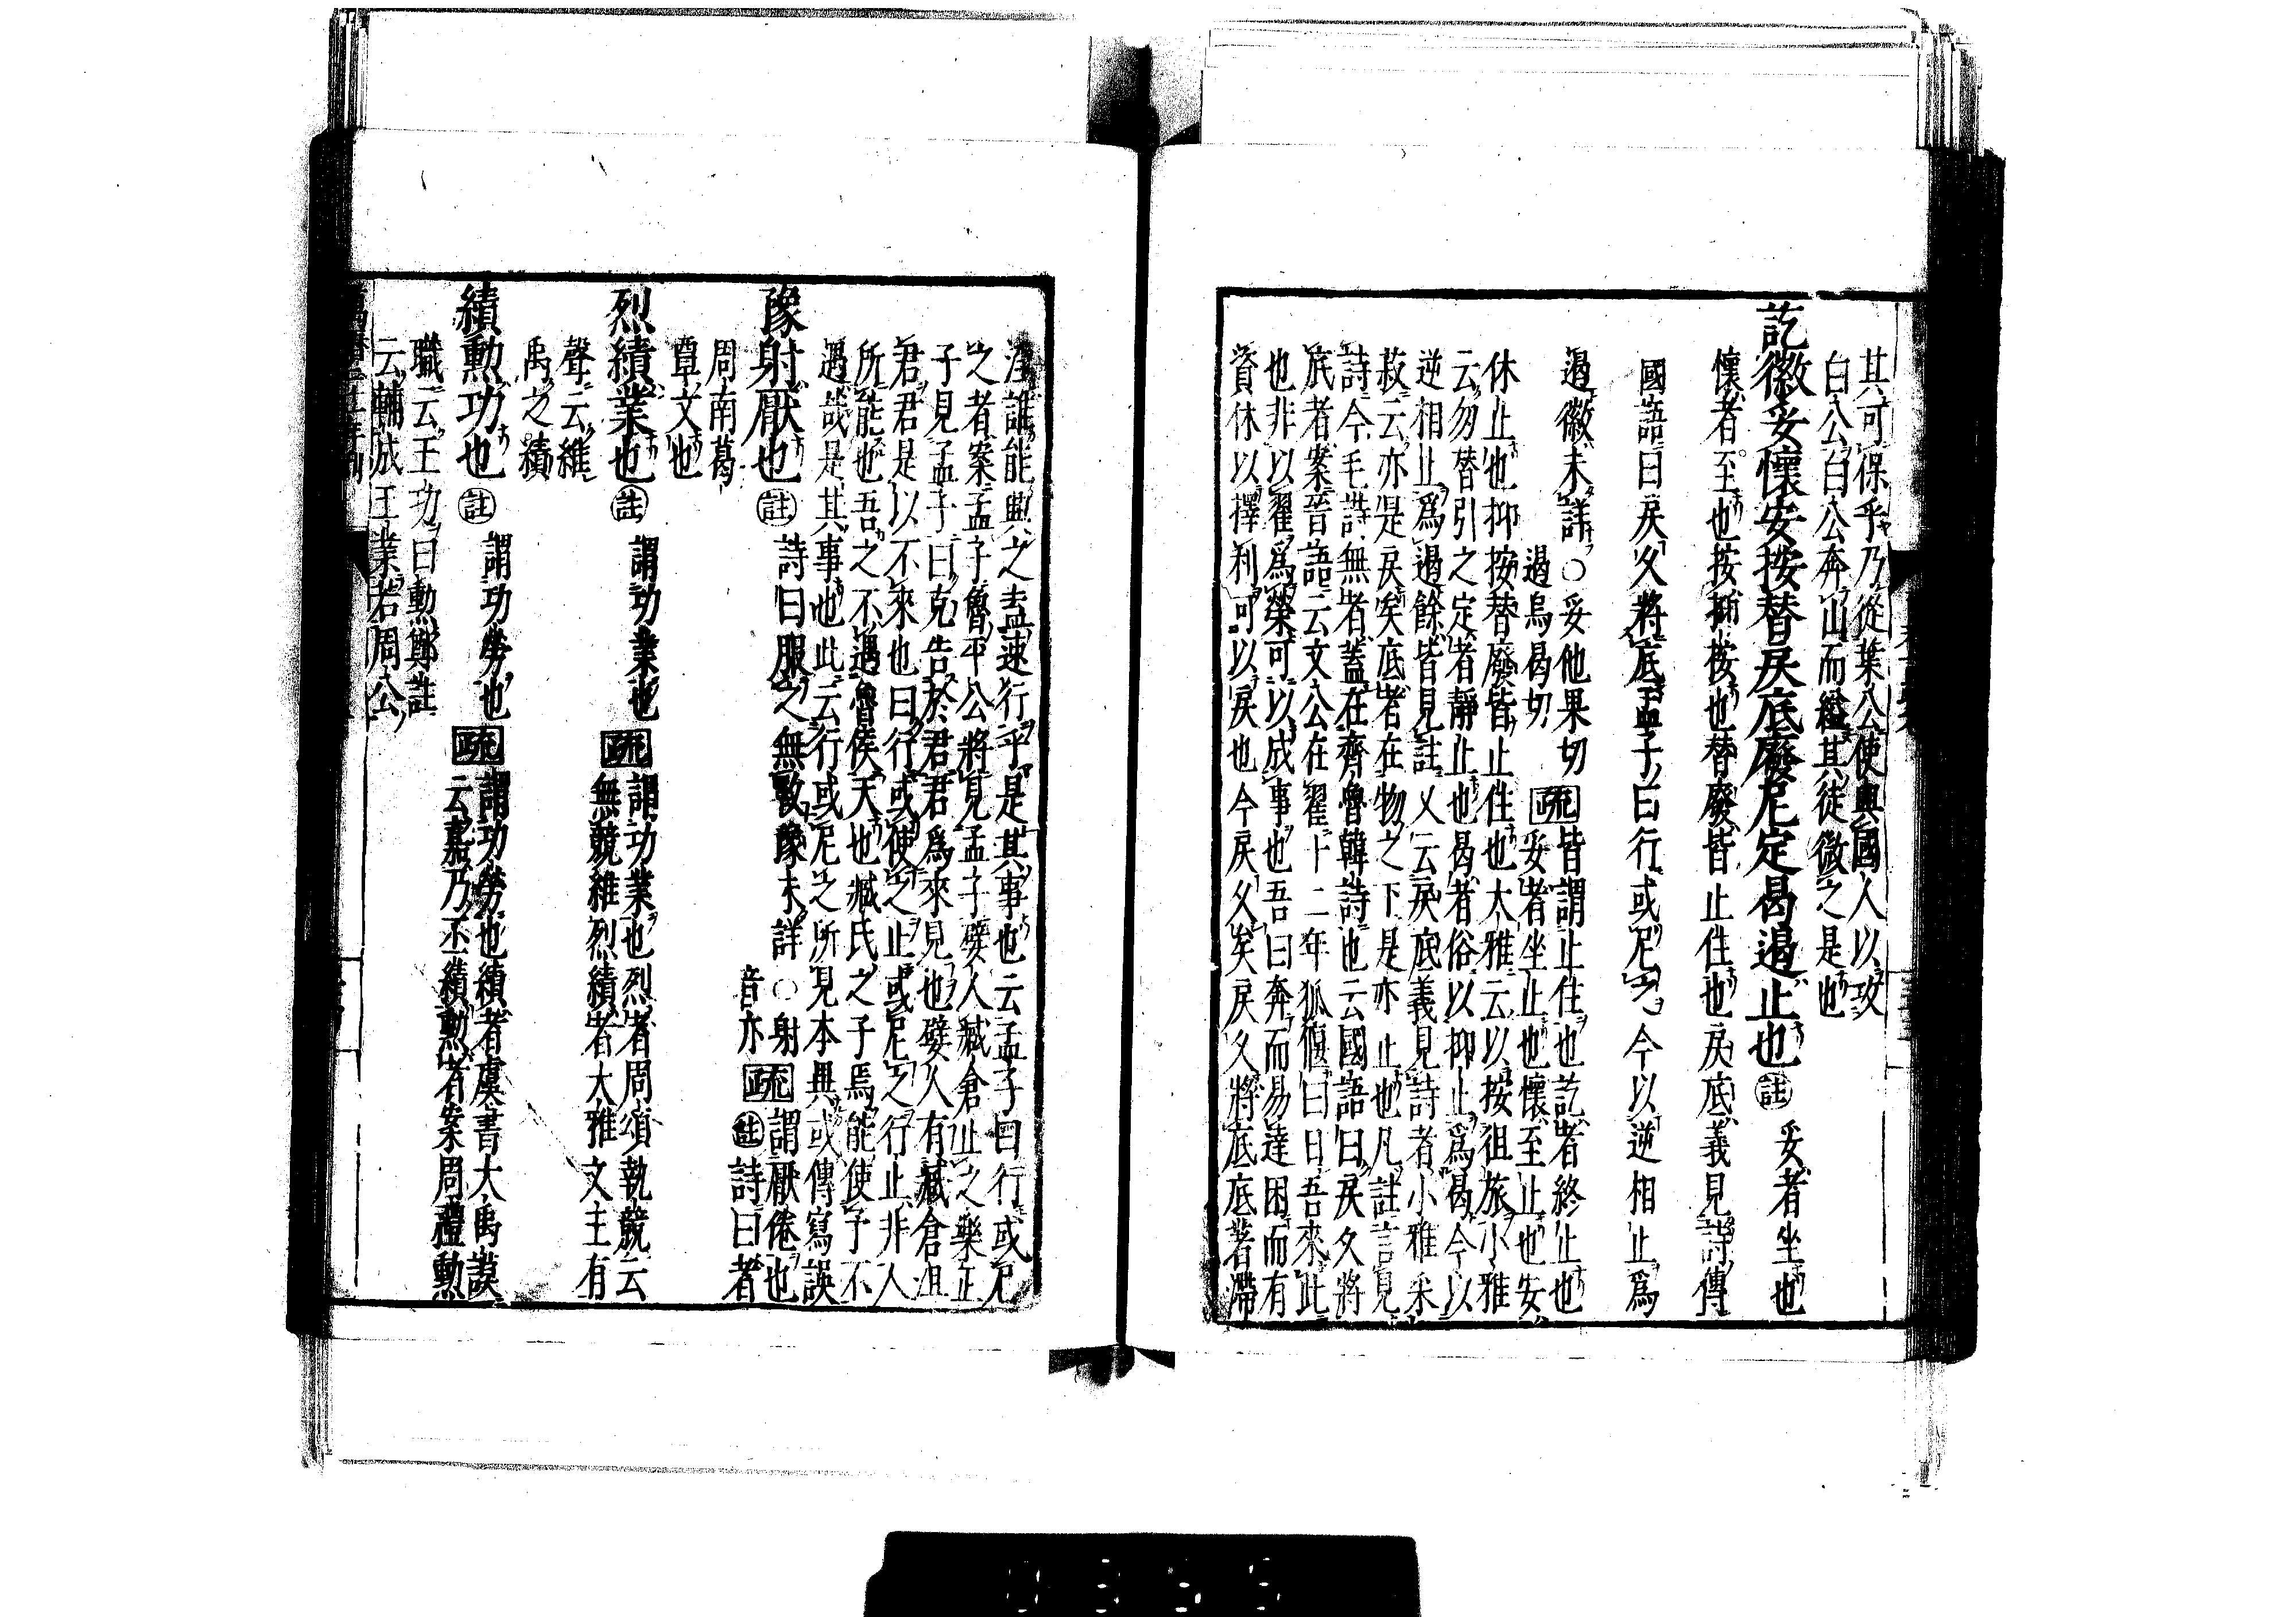 其可保乎乃從葉公使與國人以攻
白公白公奔山而縊其徒微之是也
訖徽妥懷安按替戾底廢尼定曷遏止也 註 妥者坐也
懷者至也按抑按也替廢皆止住也戾底義見詩傳
國語曰戾久將底孟子曰行或尼之今以逆相止爲
遏徽未詳○妥他果切
遏烏曷切 疏 皆謂止住也訖者終止也
妥者坐止也懷至止也安
休止也抑按替廢皆止住也大雅云以按徂旅小雅
云勿替引之定者靜止也曷者俗以抑止爲曷今以
逆相止爲遏餘皆見註乂云戾底義見詩者小雅采
菽云亦是戾矣底者在物之下是亦止也凡註言見
詩今毛詩無者蓋在齊魯韓詩也云國語曰戾久將
底者案晉語云文公在翟十二年狐偃曰日吾來此
也非以翟爲榮可以成事也吾曰奔而易達困而有
資休以擇利可以戾也今戾久矣戾久將底底著滯
淫誰能興之盍速行乎是其事也云孟子曰行或尼
之者案孟子魯平公將見孟子嬖人臧倉止之樂正
子見孟子曰克告於君君爲來見也嬖人有臧倉沮
君君是以不來也曰行或使之止或尼之行止非人
所能也吾之不遇魯侯天也臧氏之子焉能使予不
遇哉是其事也此云行或尼之所見本異或傳寫誤
豫射厭也 註 詩曰服之無斁豫未詳○射
音亦 疏 謂厭倦也
註詩曰者
周南葛
覃文也
烈績業也 註 謂功業也 疏 謂功業也烈者周頌執競云
無競維烈績者大雅文王有
聲云維
禹之績
績勳功也 註 謂功勞也 疏 謂功勞也績者虞書大禹謨
云嘉乃丕績勳者案周禮勳
職云王功曰勳鄭註
云輔成王業若周公